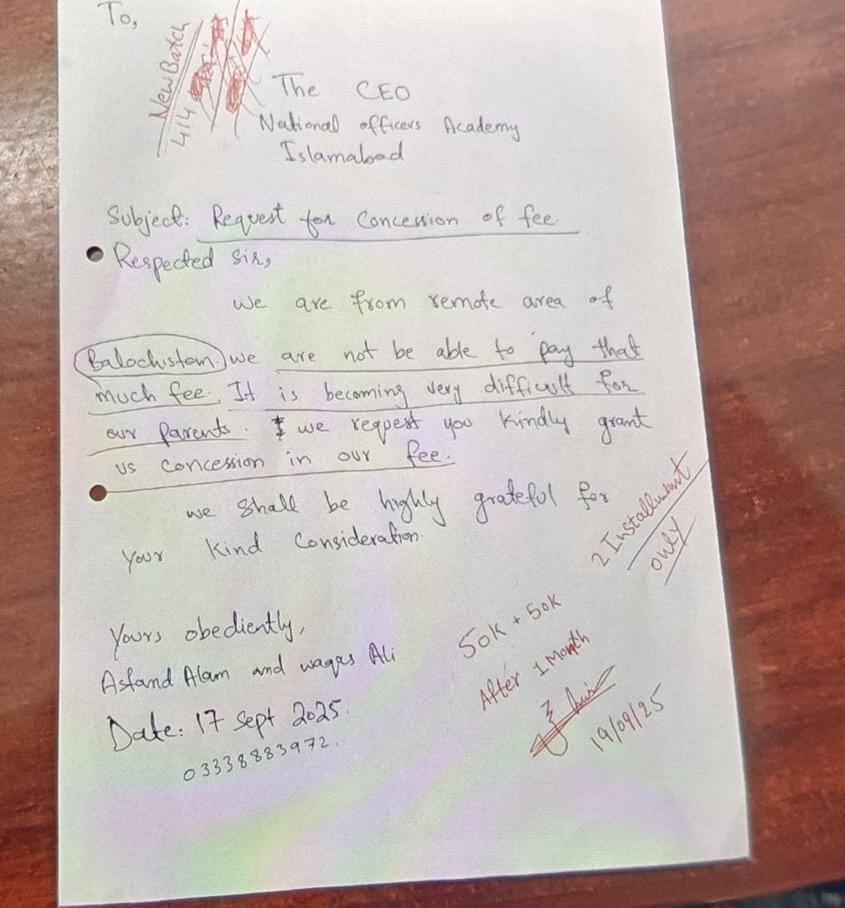 To,
New Batch
414
The CEO
National officers Academy
Islamabad
Subject: Request for Concession of fee.
Respected Sir,
we are from remote area of
Balochistan. we are not be able to pay that
much fee. It is becoming very difficult for
our Parents. we request you kindly grant
us concession in our fee.
we shall be highly grateful for
your kind consideration.
2 Installment
only
Yours obediently,
Asfand Alam and waqas Ali
Date: 17 Sept 2025.
03338883972.
50K + 50K
After 1 Month
19/09/25